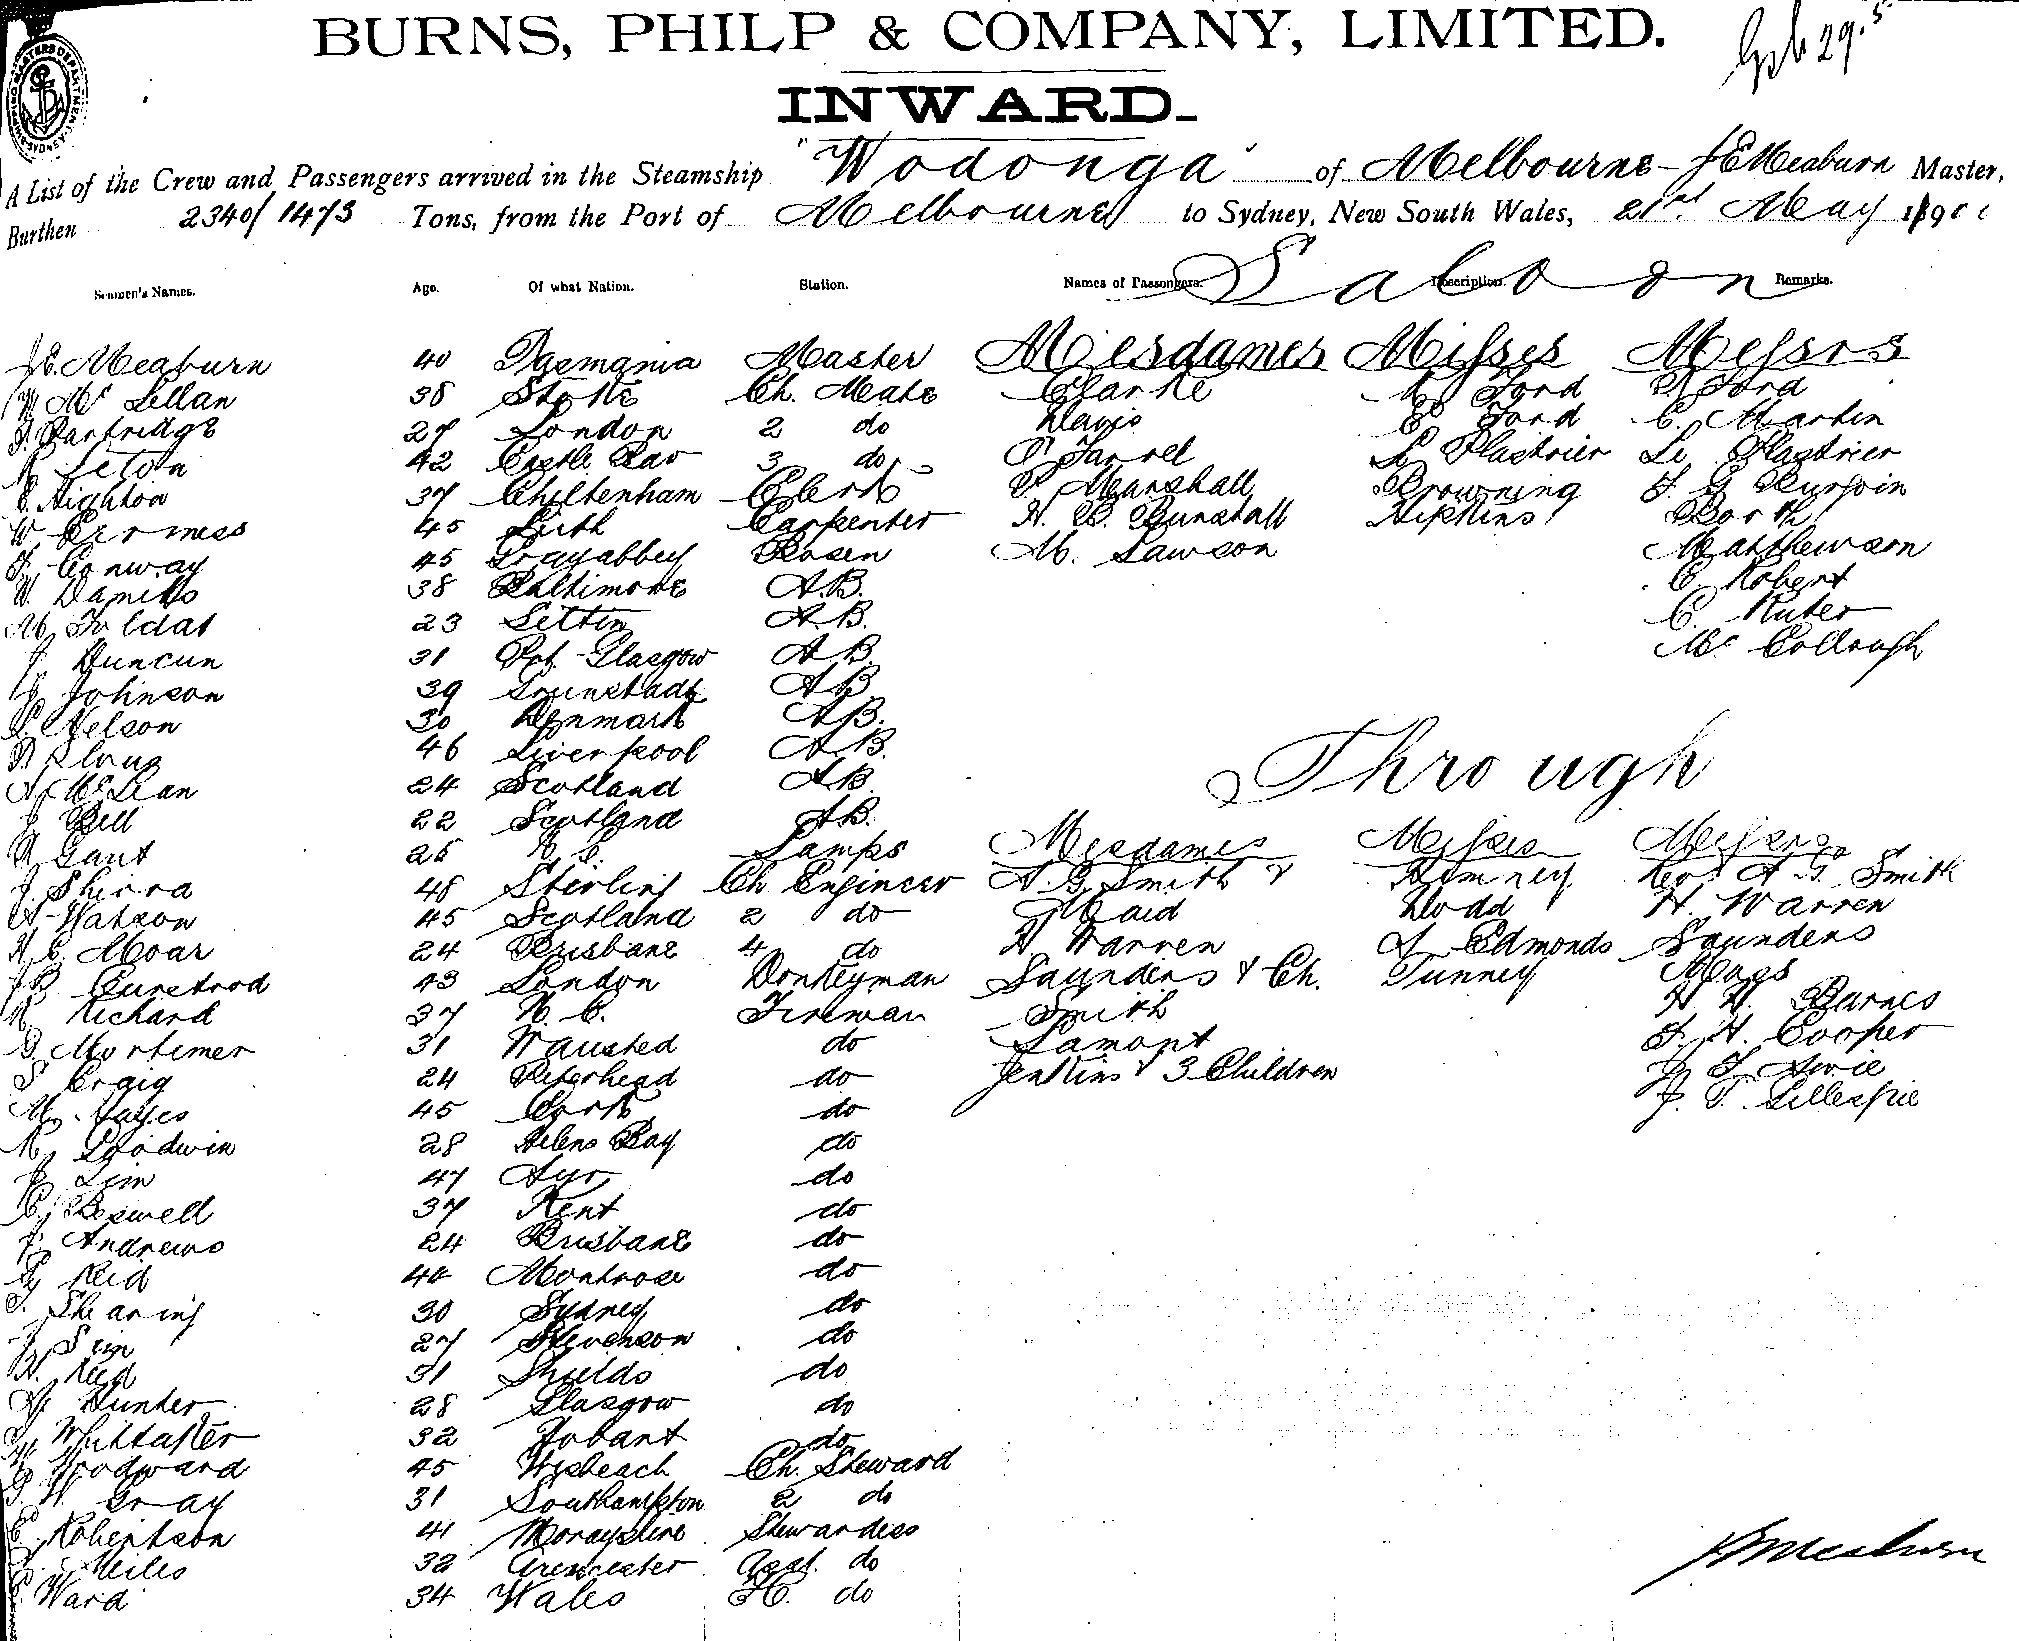 BURNS, PHILP & COMPANY, LIMITED.
INWARD.
A List of the Crew and Passengers arrived in the Steamship "Wodonga" of Melbourne - J E Meaburn Master,
Burthen 2340/1473 Tons, from the Port of Melbourne to Sydney, New South Wales, 21st May 190
Seamen's Names. Age. Of what Nation. Station. Names of Passengers. Description. Remarks.
Saloon
J E. Meaburn 40 Tasmania Master Mesdames Misses Messrs
W Mc Lellan 38 Stoke Ch. Mate Clarke Ford Ford
Partridge 27 London 2 do Davis E Ford C. Martin
42 3 do Plastrier Le Plastrier
E Highton 37 Cheltenham Clerk Marshall Browning
W 45 Leith Carpenter H. B. Gunstall Hipkins
Conway 45 Grayabbey Bosen M. Lawson Matthewson
W. Daniels 38 Baltimore A.B. Robert
M 23 A.B. C.
J Duncun 31 Pt. Glasgow A B. Mc Collough
J Johnson 39 A B
Nelson 30 Denmark A B.
46 Liverpool A B.
A McLean 24 Scotland A B
J Bell 22 Scotland A B.
Through
Gant 26 Lamps Mesdames Misses Messrs
J Shirra 48 Stirling Ch Engineer A. G. Smith & Rev A G. Smith
A Watson 45 Scotland 2 do Caid Dodd H. Warren
H C Moar 24 Brisbane 4 do H Warren A Edmonds Saunders
43 London Donkeyman Saunders & Ch. Tunney
Richard 37 N. C. Fireman Smith H H Barnes
G Mortimer 31 Wansted do Lamont F. H. Cooper
S Craig 24 Peterhead do Jenkins & 3 Children
M Hayes 45 Cork do J. T. Gillespie
Goodwin 28 Helens Bay do
J Sim 47 Ayr do
C Boswell 37 Kent do
J Andrews 24 Brisbane do
G Reid 40 Montrose do
T. Shearing 30 Sydney do
J Sim 27 Stevenson do
Reid 31 Shields do
Hunter 28 Glasgow do
Whittaker 32 Hobart do
Woodward 45 Wisbeach Ch. Steward
W Gray 31 Southampton 2 do
E. Robertson 41 Morayshire Stewardess
Miles 32 Cirencester Asst. do
Ward 34 Wales do
J E Meaburn